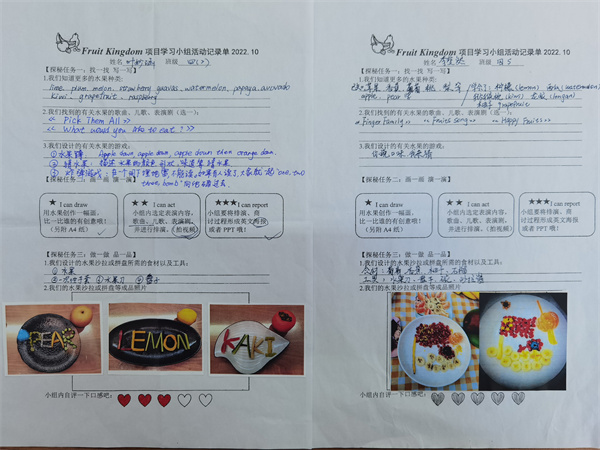 Fruit Kingdom 项目学习小组活动记录单 2022.10
姓名 班级 四(2)
【探秘任务一:找一找 写一写】
1.我们知道更多的水果种类:
lime, plum, melon, strawberry, guavas, watermelon, papaya, avocado
kiwi, grapefruit, raspberry
2.我们找到的有关水果的歌曲、儿歌、表演剧(选一):
《 Pick Them All 》
《 What would you like to eat ? 》
3.我们设计的有关水果的游戏:
①水果蹲: Apple down, apple down, apple down then orange down.
②猜水果: 描述水果的颜色 形状,味道等 猜水果
【探秘任务二:画一画 演一演】
★ I can draw
用水果创作一幅画,
比一比谁的有创意哦!
(另附 A4 纸)
★★ I can act
小组内选定表演内容,
歌曲、儿歌、表演剧……
并进行排演。(拍视频)
★★★ I can report
小组要将排演、商
讨过程形成英文海报
或者 PPT 哦!
【探秘任务三:做一做 品一品】
1.我们设计的水果沙拉或拼盘所需的食材以及工具:
①水果
②一次性手套 ③水果刀 ④盘子
2.我们的水果沙拉或拼盘等成品照片
PEAR
LEMON
KAKI
小组内自评一下口感吧:
Fruit Kingdom 项目学习小组活动记录单 2022.10
姓名 班级
【探秘任务一:找一找 写一写】
1.我们知道更多的水果种类:
苹果 香蕉 葡萄 桃 梨 柠檬(lemon) (watermelon)
apple pear 龙眼(longan)
柚子 grapefruit
2.我们找到的有关水果的歌曲、儿歌、表演剧(选一):
《Finger Family》 《Fruits Song》 《Happy Fruits》
3.我们设计的有关水果的游戏:
【探秘任务二:画一画 演一演】
★ I can draw
用水果创作一幅画,
比一比谁的有创意哦!
(另附 A4 纸)
★★ I can act
小组内选定表演内容,
歌曲、儿歌、表演剧……
并进行排演。(拍视频)
★★★ I can report
小组要将排演、商
讨过程形成英文海报
或者 PPT 哦!
【探秘任务三:做一做 品一品】
1.我们设计的水果沙拉或拼盘所需的食材以及工具:
食材: 葡萄 香蕉 柚子 石榴
工具: 水果刀 盘子
2.我们的水果沙拉或拼盘等成品照片
小组内自评一下口感吧: